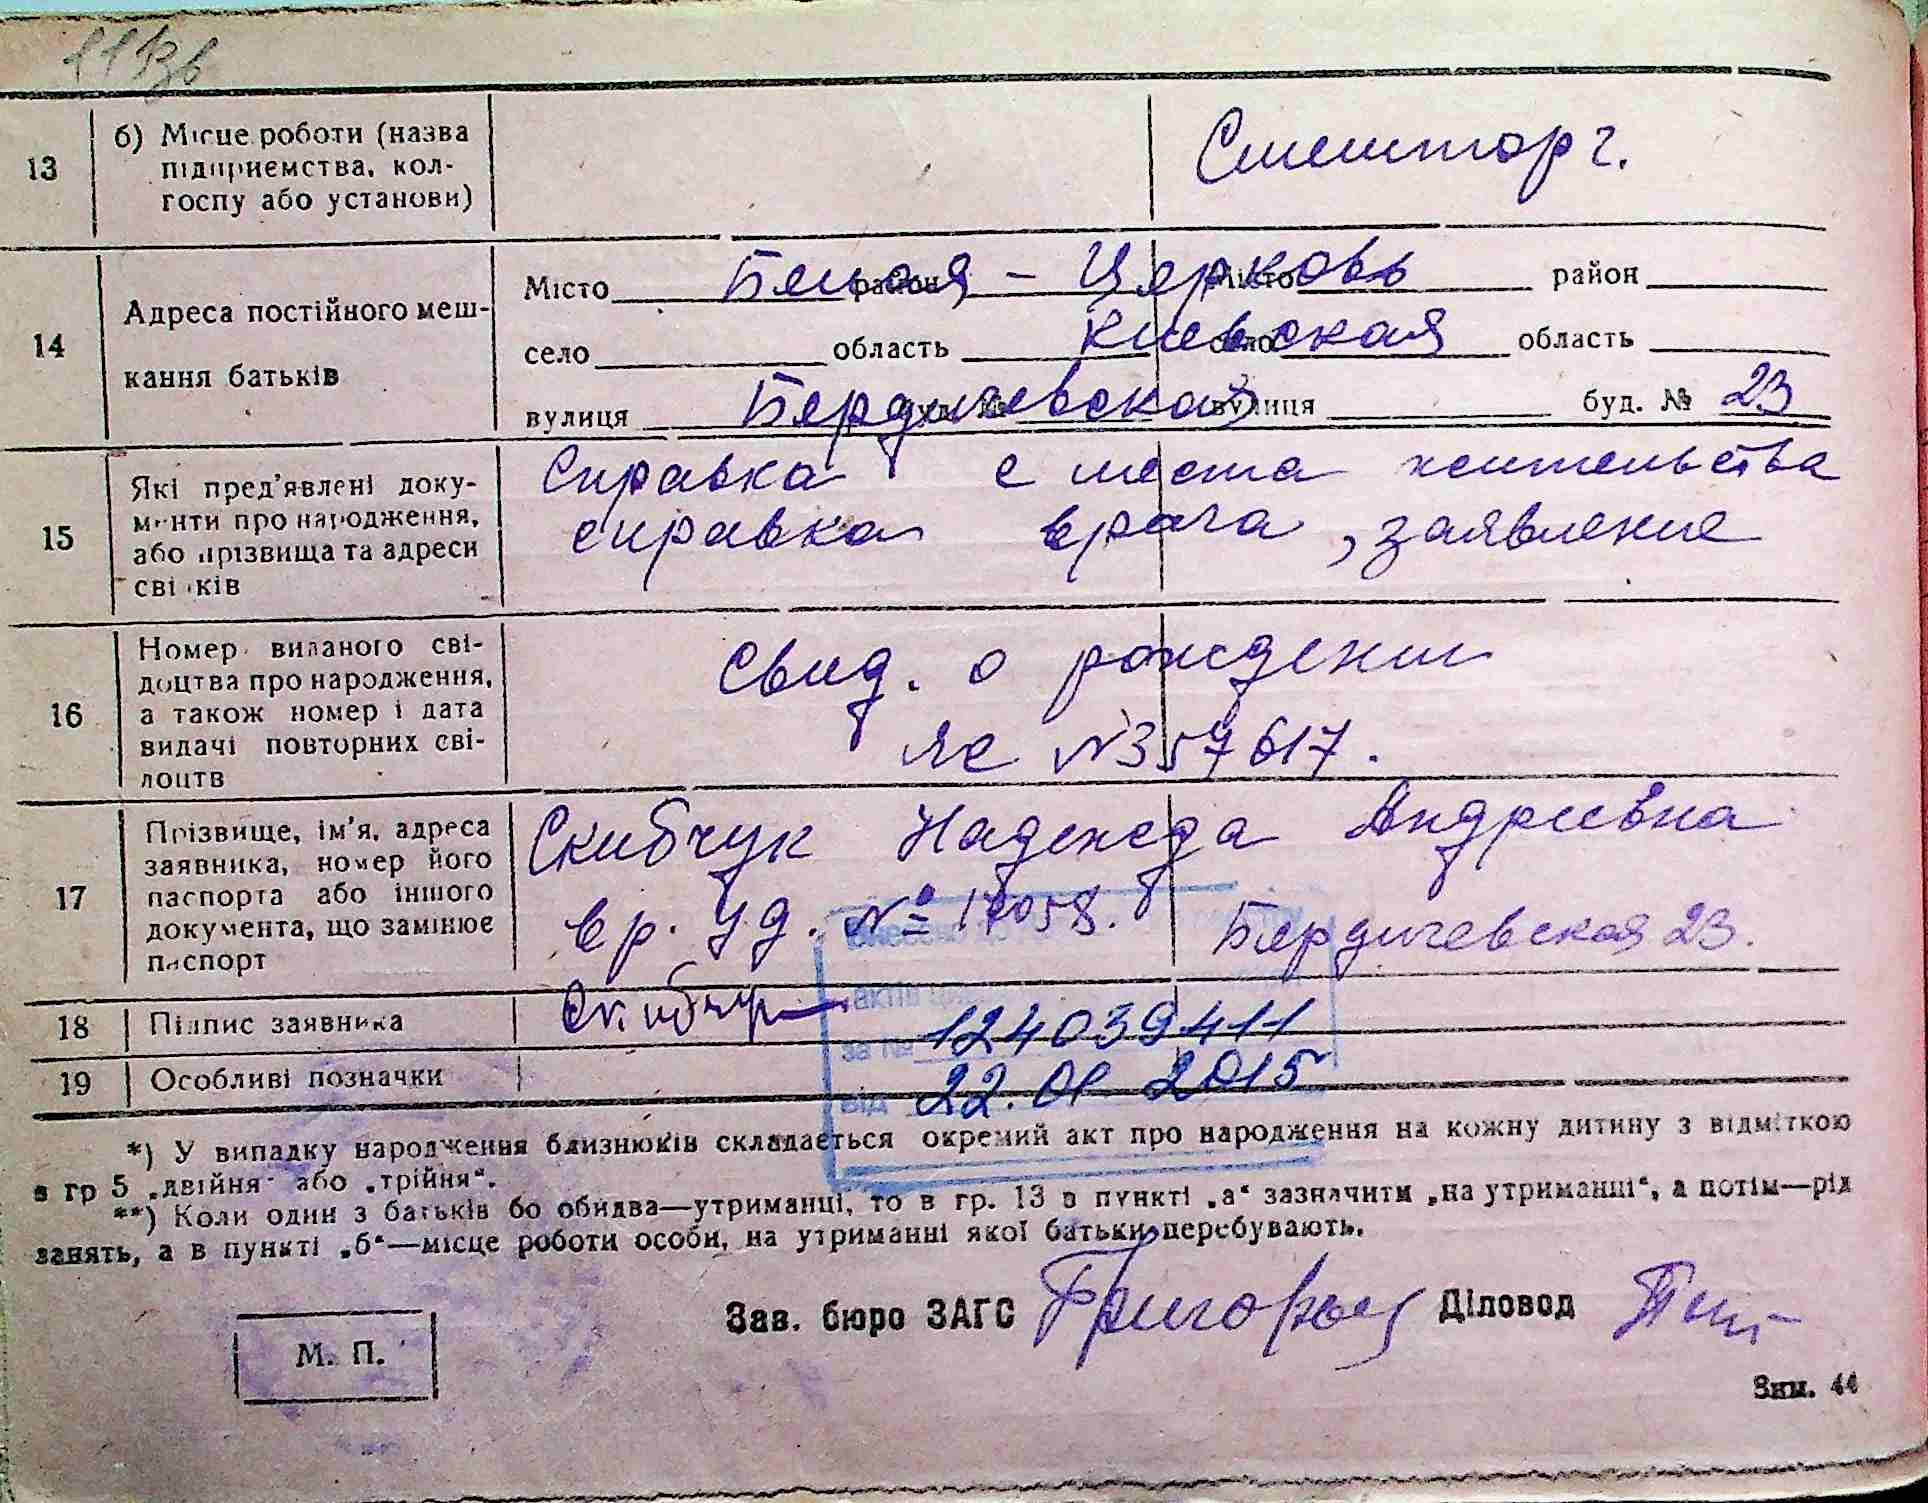 13
б) Місце роботи (назва
підприємства, кол-
госпу або установи)
Смешторг.
14
Адреса постійного меш-
кання батьків
Місто Белая - Церковь район Місто район
село область Киевская село область
вулиця Бердичевская буд. № вулиця буд. № 23
15
Які пред'явлені доку-
менти про народження,
або прізвища та адреси
свідків
Справка с места жительства
справка врача, заявление
16
Номер виданого сві-
доцтва про народження,
а також номер і дата
видачі повторних сві-
доцтв
Свид. о рождении
ЯС №357617.
17
Прізвище, ім'я, адреса
заявника, номер його
паспорта або іншого
документа, що замінює
паспорт
Скибчук Надежда Андреевна
вр. уд. № 17058. Бердичевская 23.
18
Підпис заявника
Скибчук
актів
за № 124039411
19
Особливі позначки
від 22.01 2015
*) У випадку народження близнюків складається окремий акт про народження на кожну дитину з відміткою
в гр 5 „двійня" або „трійня".
**) Коли один з батьків бо обидва—утриманці, то в гр. 13 в пункті „а" зазначити „на утриманні", а потім—рід
занять, а в пункті „б"—місце роботи особи, на утриманні якої батьки перебувають.
Зав. бюро ЗАГС Діловод
М. П.
Зим. 44